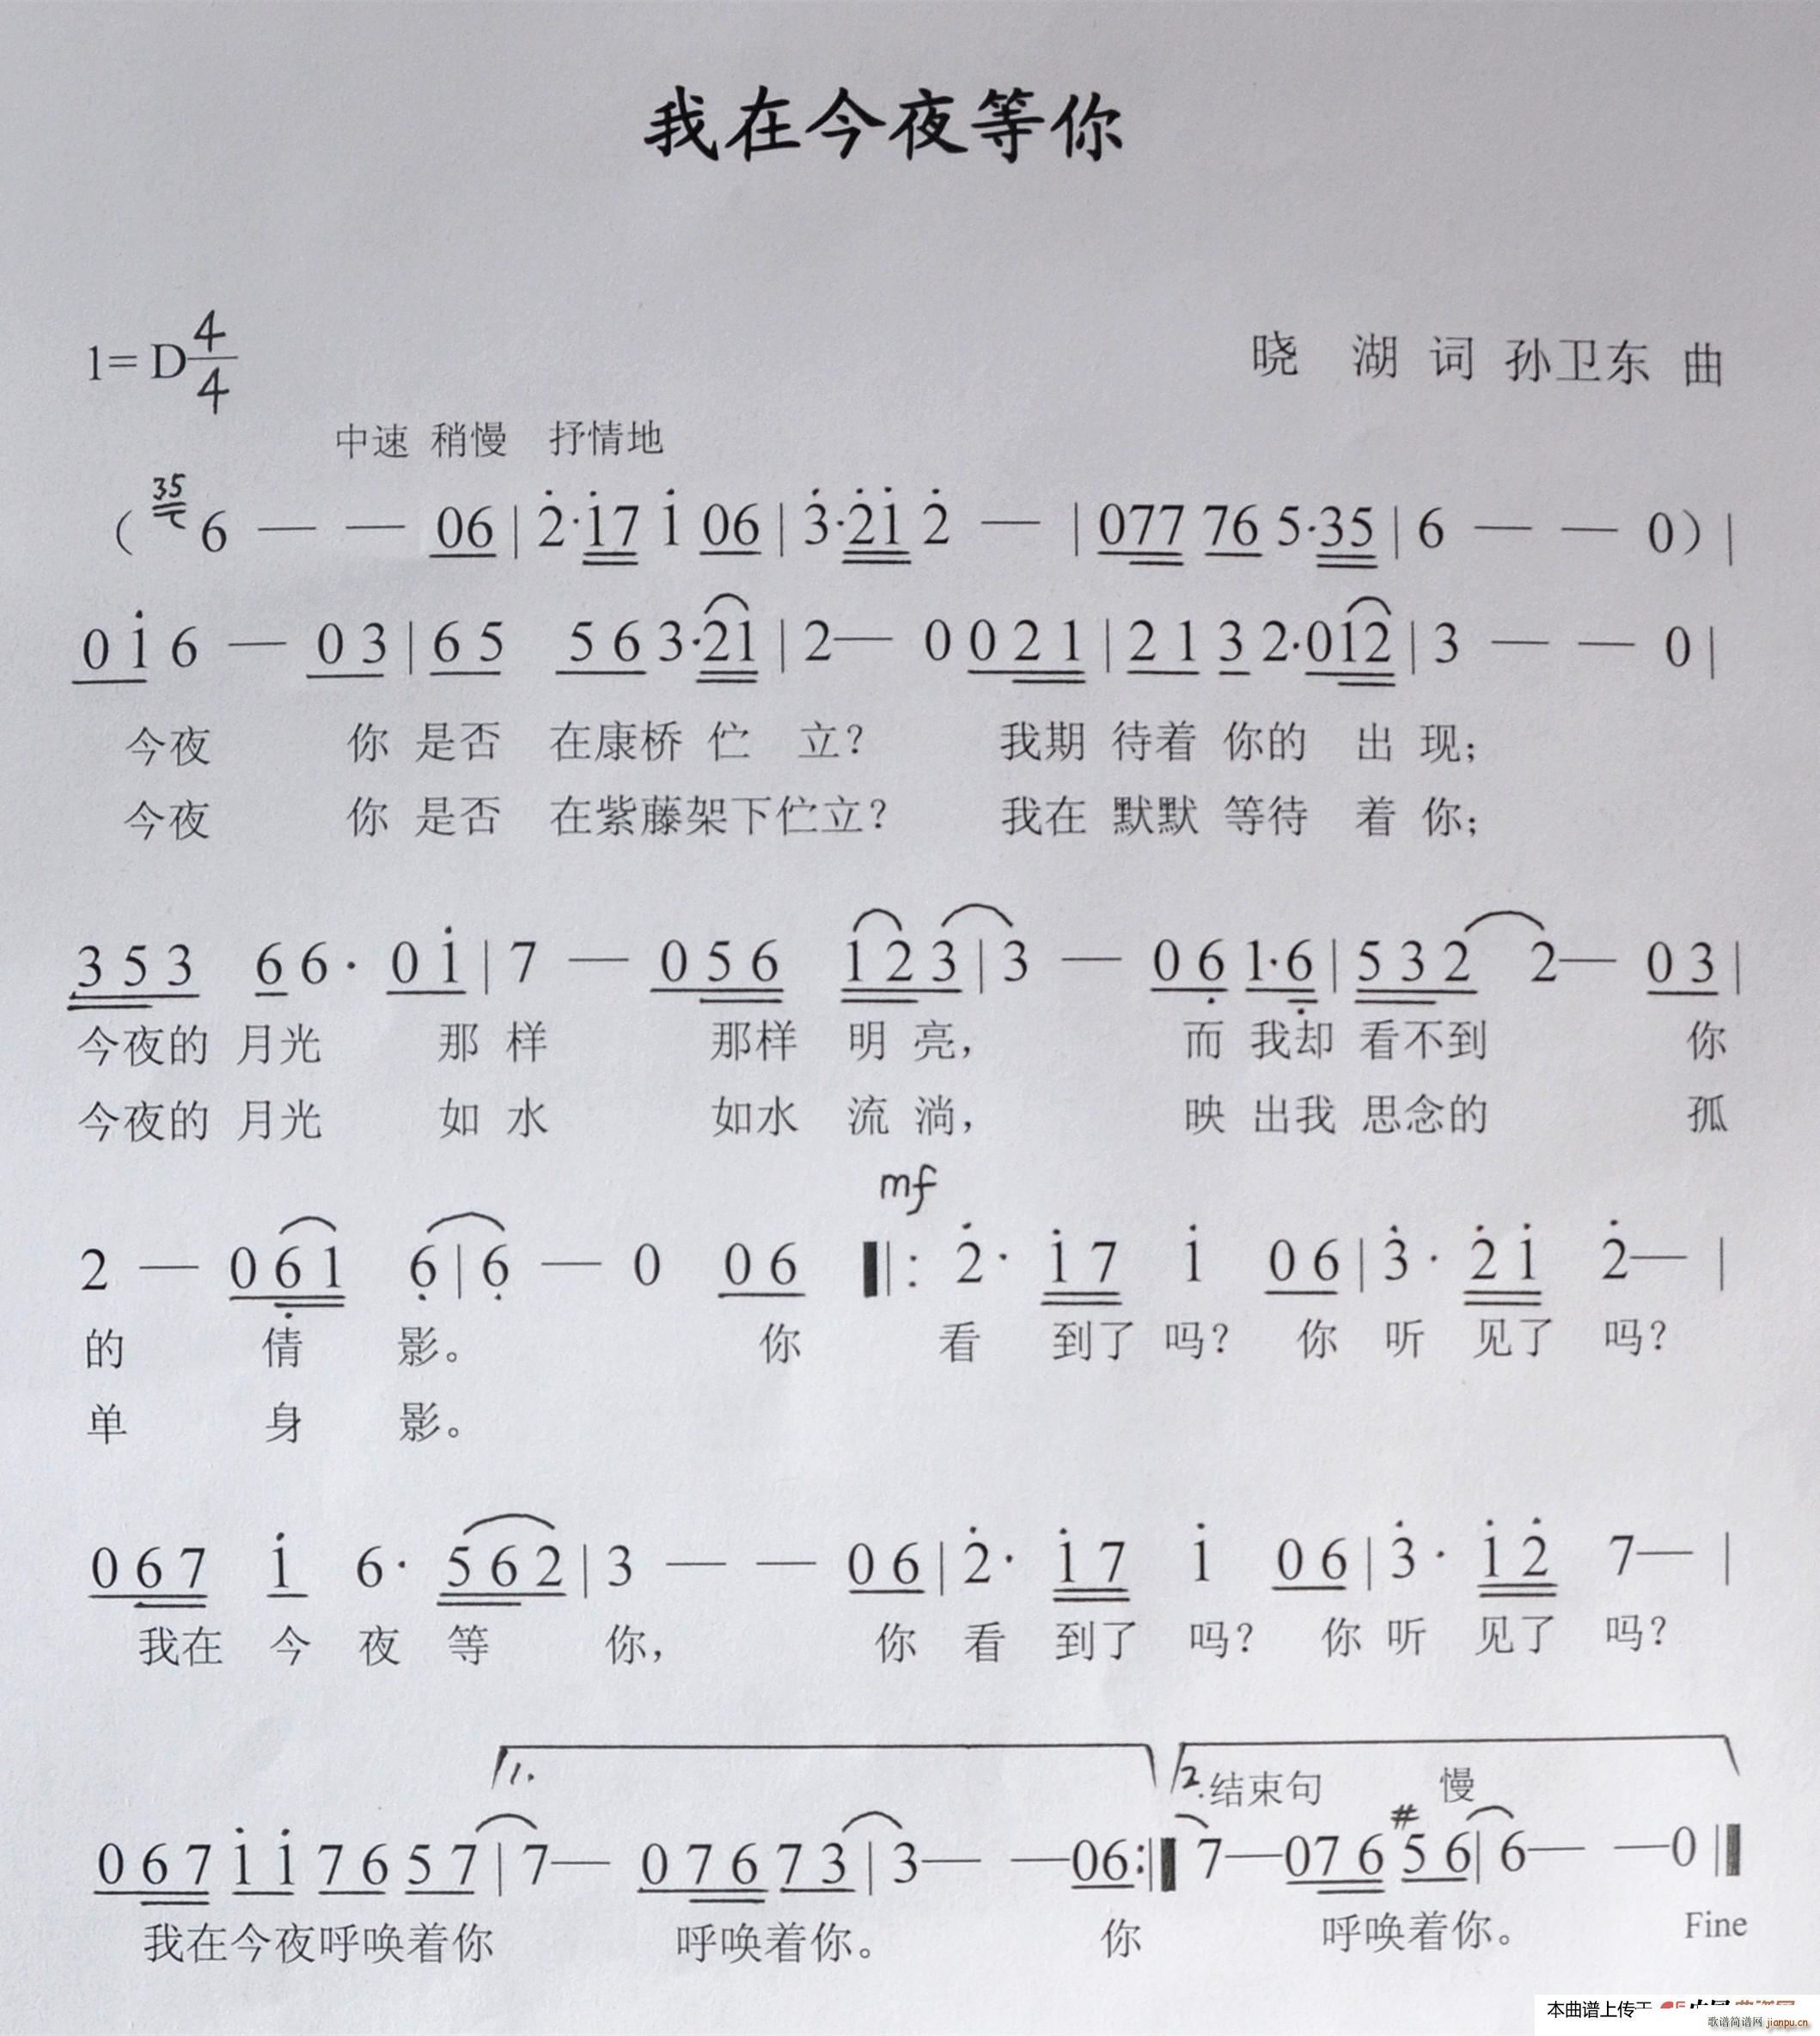 我在今夜等你
1=D 4/4
晓 湖 词 孙卫东 曲
中速 稍慢 抒情地
( 35 6 — — 06 | 2·17 1 06 | 3·21 2 — | 077 76 5·35 | 6 — — 0 ) |
0 1 6 — 0 3 | 6 5 5 6 3·21 | 2 — 0 0 2 1 | 2 1 3 2·012 | 3 — — 0 |
今夜 你 是否 在康桥 伫 立? 我期 待着 你的 出 现;
今夜 你 是否 在紫藤架下伫立? 我在 默默 等待 着 你;
3 5 3 6 6 · 0 1 | 7 — 0 5 6 1 2 3 | 3 — 0 6 1·6 | 5 3 2 2 — 0 3 |
今夜的 月光 那 样 那样 明 亮, 而 我却 看不到 你
今夜的 月光 如 水 如水 流 淌, 映 出我 思念的 孤
mf
2 — 0 6 1 6 | 6 — 0 0 6 ‖: 2 · 1 7 1 0 6 | 3 · 2 1 2 — |
的 倩 影。 你 看 到了 吗? 你 听 见了 吗?
单 身 影。
0 6 7 1 6 · 5 6 2 | 3 — — 0 6 | 2 · 1 7 1 0 6 | 3 · 1 2 7 — |
我在 今 夜 等 你, 你 看 到了 吗? 你 听 见了 吗?
1. 2. 结束句 慢
0 6 7 1 1 7 6 5 7 | 7 — 0 7 6 7 3 | 3 — — 06 :‖ 7 — 07 6 #5 6 | 6 — — 0 ‖
我在今夜呼唤着你 呼唤着你。 你 呼唤着你。 Fine
本曲谱上传于
歌谱简谱网 jianpu.cn